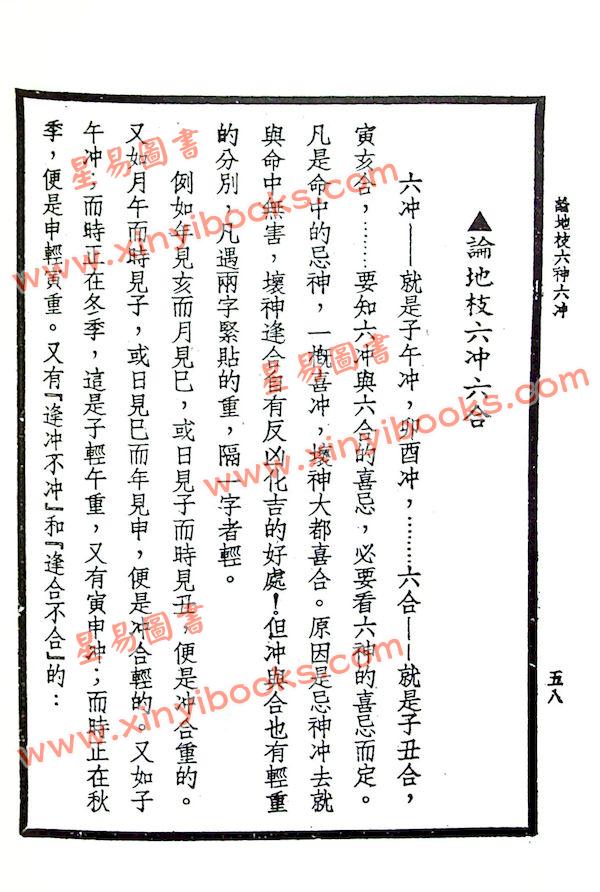 論地枝六神六冲
五八
▲論地枝六冲六合
六冲——就是子午冲，卯酉冲，……六合——就是子丑合，
寅亥合，……要知六冲與六合的喜忌，必要看六神的喜忌而定。
凡是命中的忌神，一概喜冲，壞神大都喜合。原因是忌神冲去就
與命中無害，壞神逢合自有反凶化吉的好處！但冲與合也有輕重
的分別，凡遇兩字緊貼的重，隔一字者輕。
例如年見亥而月見巳，或日見子而時見丑，便是冲合重的。
又如月午而時見子，或日見巳而年見申，便是冲合輕的。又如子
午冲；而時正在冬季，這是子輕午重，又有寅申冲；而時正在秋
季，便是申輕寅重。又有『逢冲不冲』和『逢合不合』的：
星易圖書
www.xinyibooks.com
星易圖書
www.xinyibooks.com
星易圖書
www.xinyibooks.com